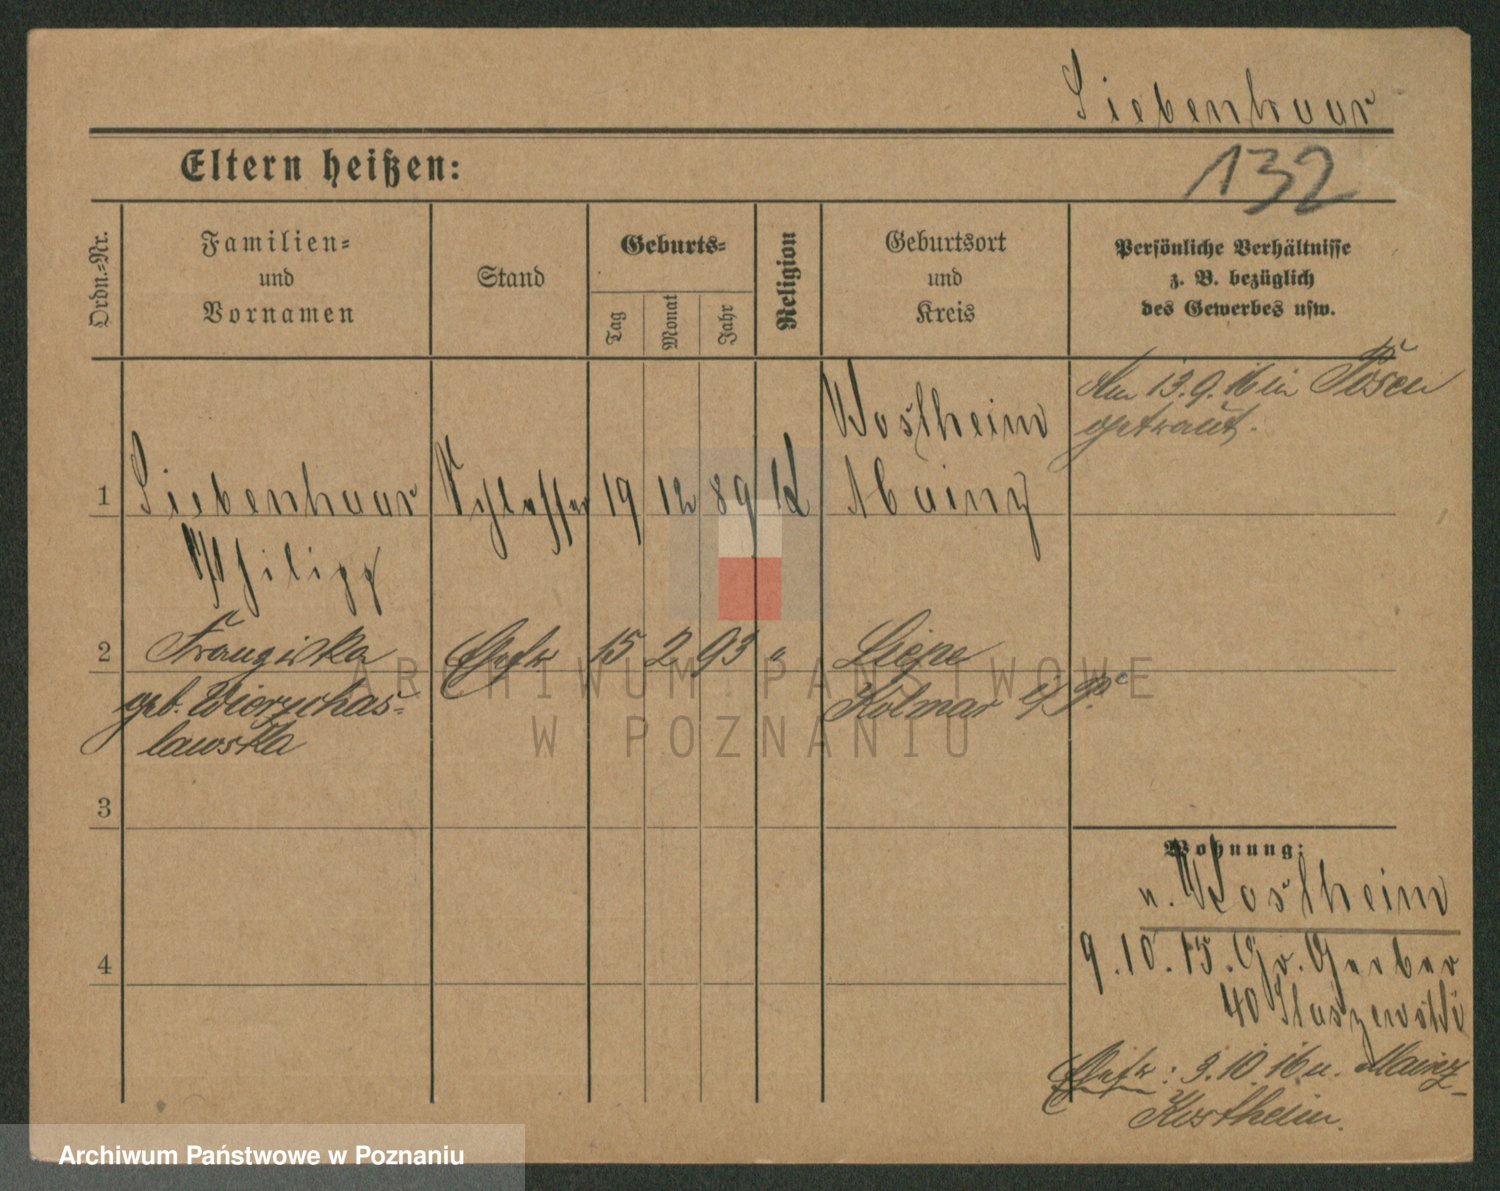 Siebenhaar
Eltern heißen:
132
Ordn.-Nr.
Familien-
und
Vornamen
Stand
Geburts-
Tag
Monat
Jahr
Religion
Geburtsort
und
Kreis
Persönliche Verhältnisse
z. B. bezüglich
des Gewerbes usw.
1
Siebenhaar
Philipp
Schlosser
19 12 89
Kostheim
Mainz
Am 13.9.16 in Posen
getraut.
2
Franziska
geb. Wierzchas-
lawska
Ehefr
15 2 93 "
Liepe
Kolmar i/P.
3
4
Wohnung:
n. Kostheim
9.10.15. Gr. Gerber
40
Ehefr: 3.10.16 n. Mainz-
Kostheim.
ARCHIWUM PAŃSTWOWE
W POZNANIU
Archiwum Państwowe w Poznaniu